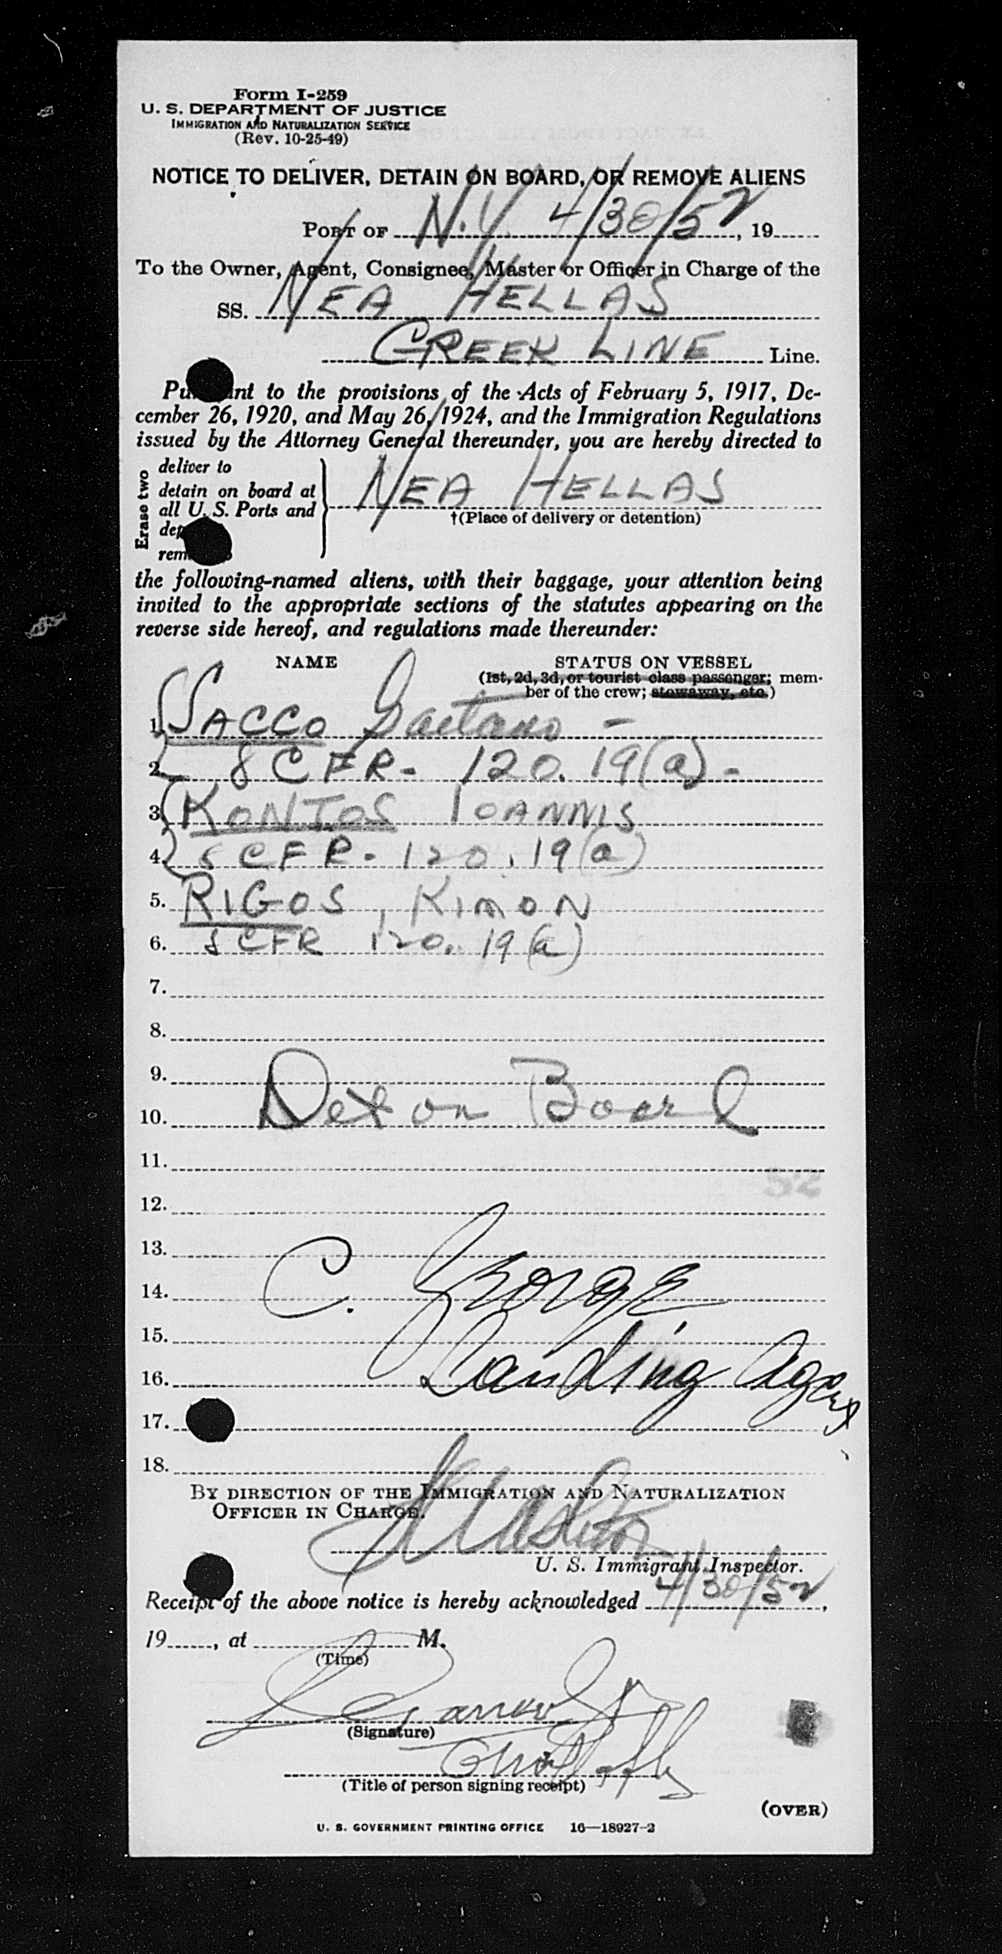 Form I-259
U. S. DEPARTMENT OF JUSTICE
IMMIGRATION AND NATURALIZATION SERVICE
(Rev. 10-25-49)
NOTICE TO DELIVER, DETAIN ON BOARD, OR REMOVE ALIENS
PORT OF N.Y. 4/30/52, 19
To the Owner, Agent, Consignee, Master or Officer in Charge of the
SS. NEA HELLAS
GREEK LINE Line.
Pu nt to the provisions of the Acts of February 5, 1917, De-
cember 26, 1920, and May 26, 1924, and the Immigration Regulations
issued by the Attorney General thereunder, you are hereby directed to
Erase two
deliver to
detain on board at
all U. S. Ports and
de
rem
NEA HELLAS
†(Place of delivery or detention)
the following-named aliens, with their baggage, your attention being
invited to the appropriate sections of the statutes appearing on the
reverse side hereof, and regulations made thereunder:
NAME STATUS ON VESSEL
(1st, 2d, 3d, or tourist class passenger; mem-
ber of the crew; stowaway, etc.)
1. SACCO Gaetano -
2. 8 CFR - 120.19(a) -
3. KONTOS IOANNIS
4. 8 CFR - 120.19(a)
5. RIGOS, KIMON
6. 8 CFR 120.19(a)
7.
8.
9.
10. Det on Board
11.
12.
13.
14. C. George
15.
16. Landing Agent
17.
18.
BY DIRECTION OF THE IMMIGRATION AND NATURALIZATION
OFFICER IN CHARGE.
U. S. Immigrant Inspector.
Receipt of the above notice is hereby acknowledged 4/30/52,
19, at M.
(Time)
(Signature)
(Title of person signing receipt)
(OVER)
U. S. GOVERNMENT PRINTING OFFICE 16—18927-2